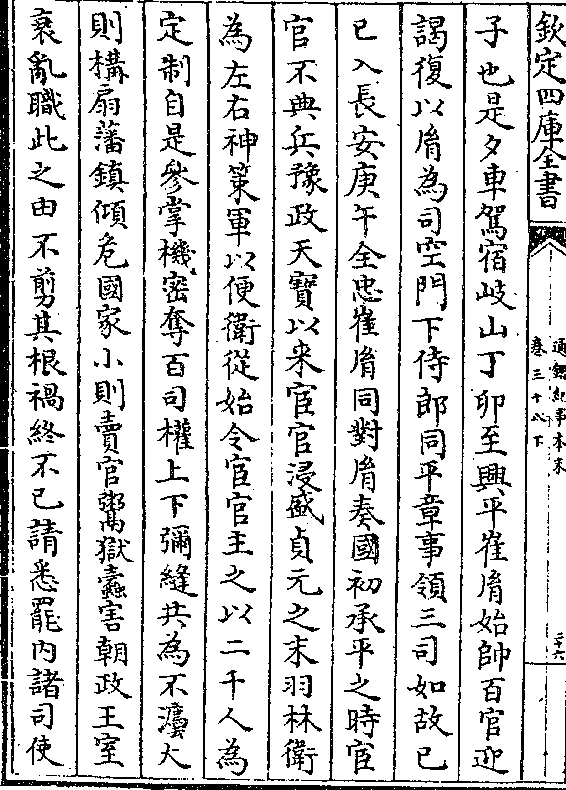 欽定四庫全書
通鑑紀事本末
卷三十八下
二十六
子也是夕車駕宿岐山丁卯至興平崔胤始帥百官迎
謁復以胤為司空門下侍郎同平章事領三司如故已
已入長安庚午全忠崔胤同對胤奏國初承平之時宦
官不典兵豫政天寶以來宦官浸盛貞元之末羽林衛
為左右神策軍以便衛從始令宦官主之以二千人為
定制自是參掌機密奪百司權上下彌縫共為不灋大
則構扇藩鎮傾危國家小則賣官鬻獄蠹害朝政王室
衰亂職此之由不剪其根禍終不已請悉罷內諸司使